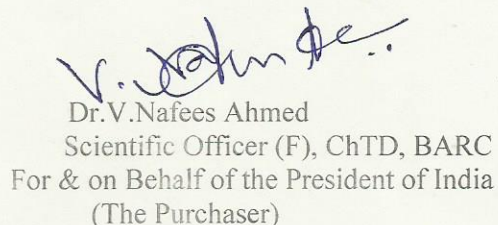 Dr.V.Nafees Ahmed
Scientific Officer (F), ChTD, BARC
For & on Behalf of the President of India
(The Purchaser)